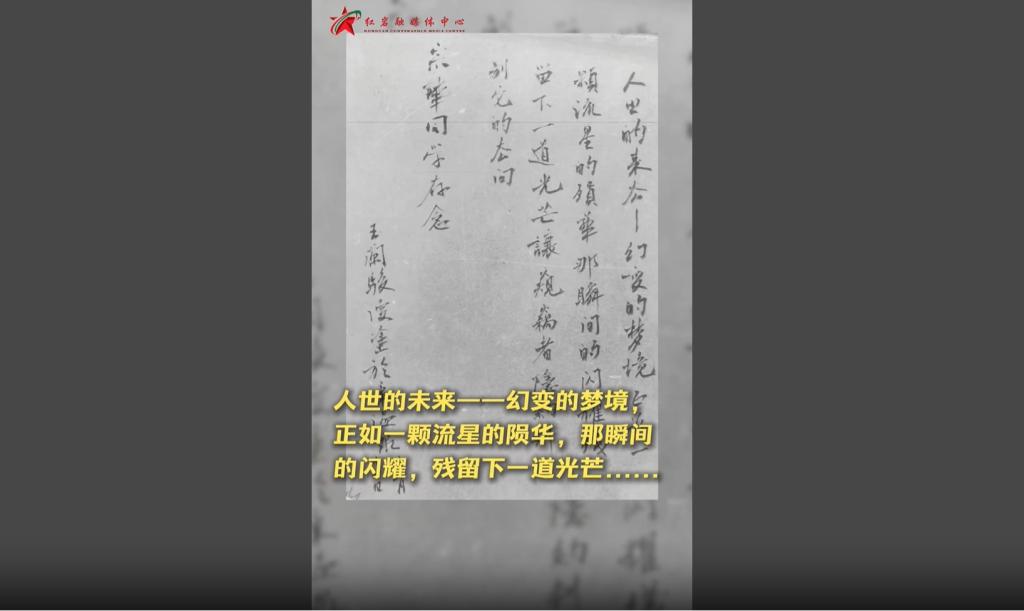 红岩融媒体中心
HONGYAN CONVERGENCE MEDIA CENTRE
人世的来去—幻变的梦境
颗流星的殒華那瞬间的闪耀
留下一道光芒讓窺竊者隐
它的
華同学存念
王闌駿塗於
人世的未来——幻变的梦境，
正如一颗流星的陨华，那瞬间
的闪耀，残留下一道光芒……